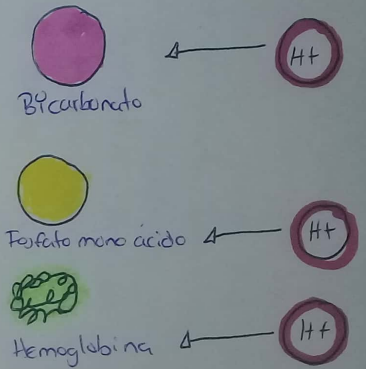 H+
BYcarbonato
Fosfato mono ácido
H+
Hemoglobina
H+